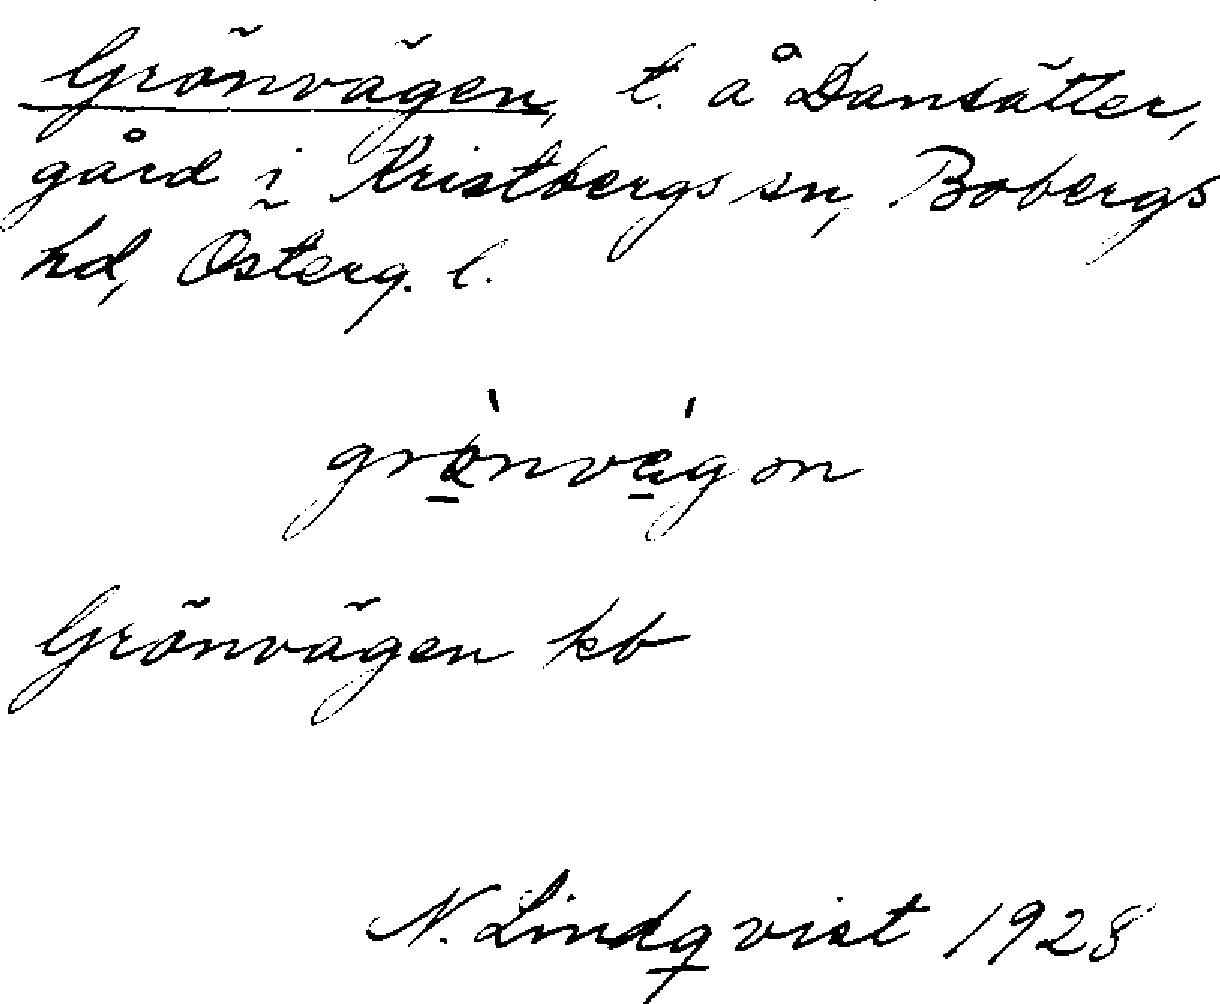 Grönvägen, t. å Dansätter,
gård i Kristbergs sn, Bobergs
hd, Österg. l.
Grönvägen kb
N. Lindqvist 1928